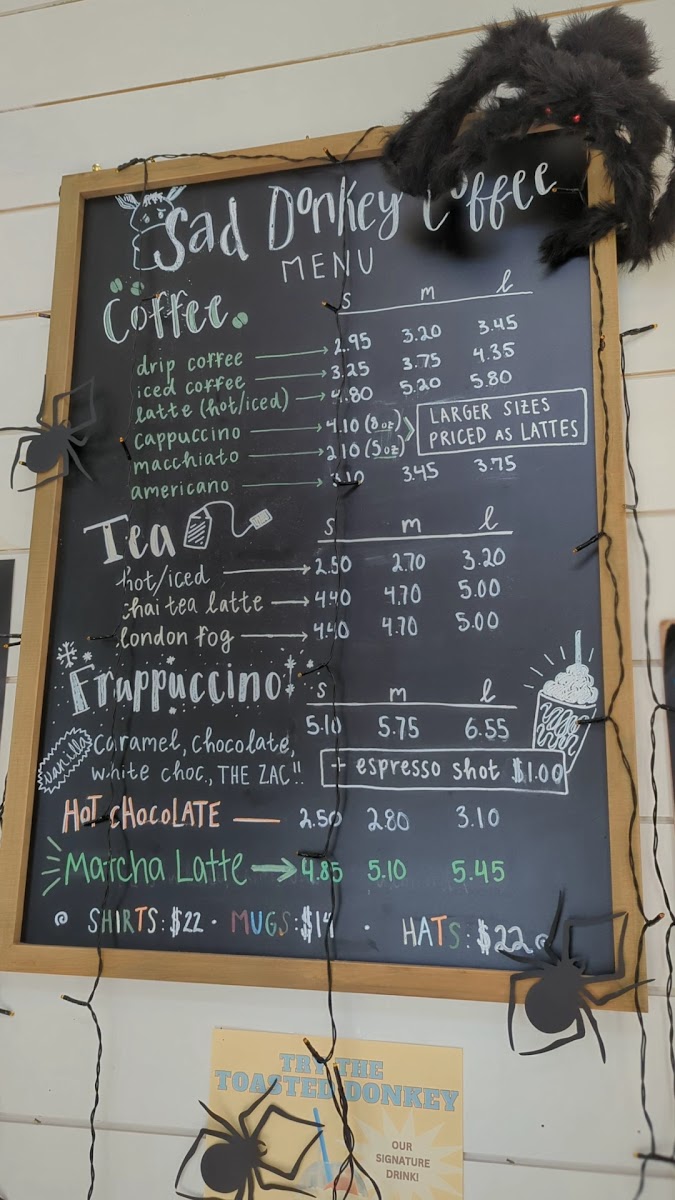 Sad Donkey Coffee
MENU
Coffee
s m l
drip coffee 2.95 3.20 3.45
iced coffee 3.25 3.75 4.35
latte (hot/iced) 4.80 5.20 5.80
cappuccino 4.10 (8oz)
macchiato 2.10 (5oz)
LARGER SIZES
PRICED AS LATTES
americano 3.45 3.75
Tea
s m l
hot/iced 2.50 2.70 3.20
chai tea latte 4.40 4.70 5.00
london fog 4.40 4.70 5.00
Frappuccino
s m l
5.10 5.75 6.55
Vanilla
Caramel, Chocolate,
White choc., THE ZAC!!
+ espresso shot $1.00
HOT CHOCOLATE 2.50 2.80 3.10
Matcha Latte 4.85 5.10 5.45
SHIRTS: $22 · MUGS: $14 · HATS: $22
TRY THE
TOASTED DONKEY
OUR
SIGNATURE
DRINK!